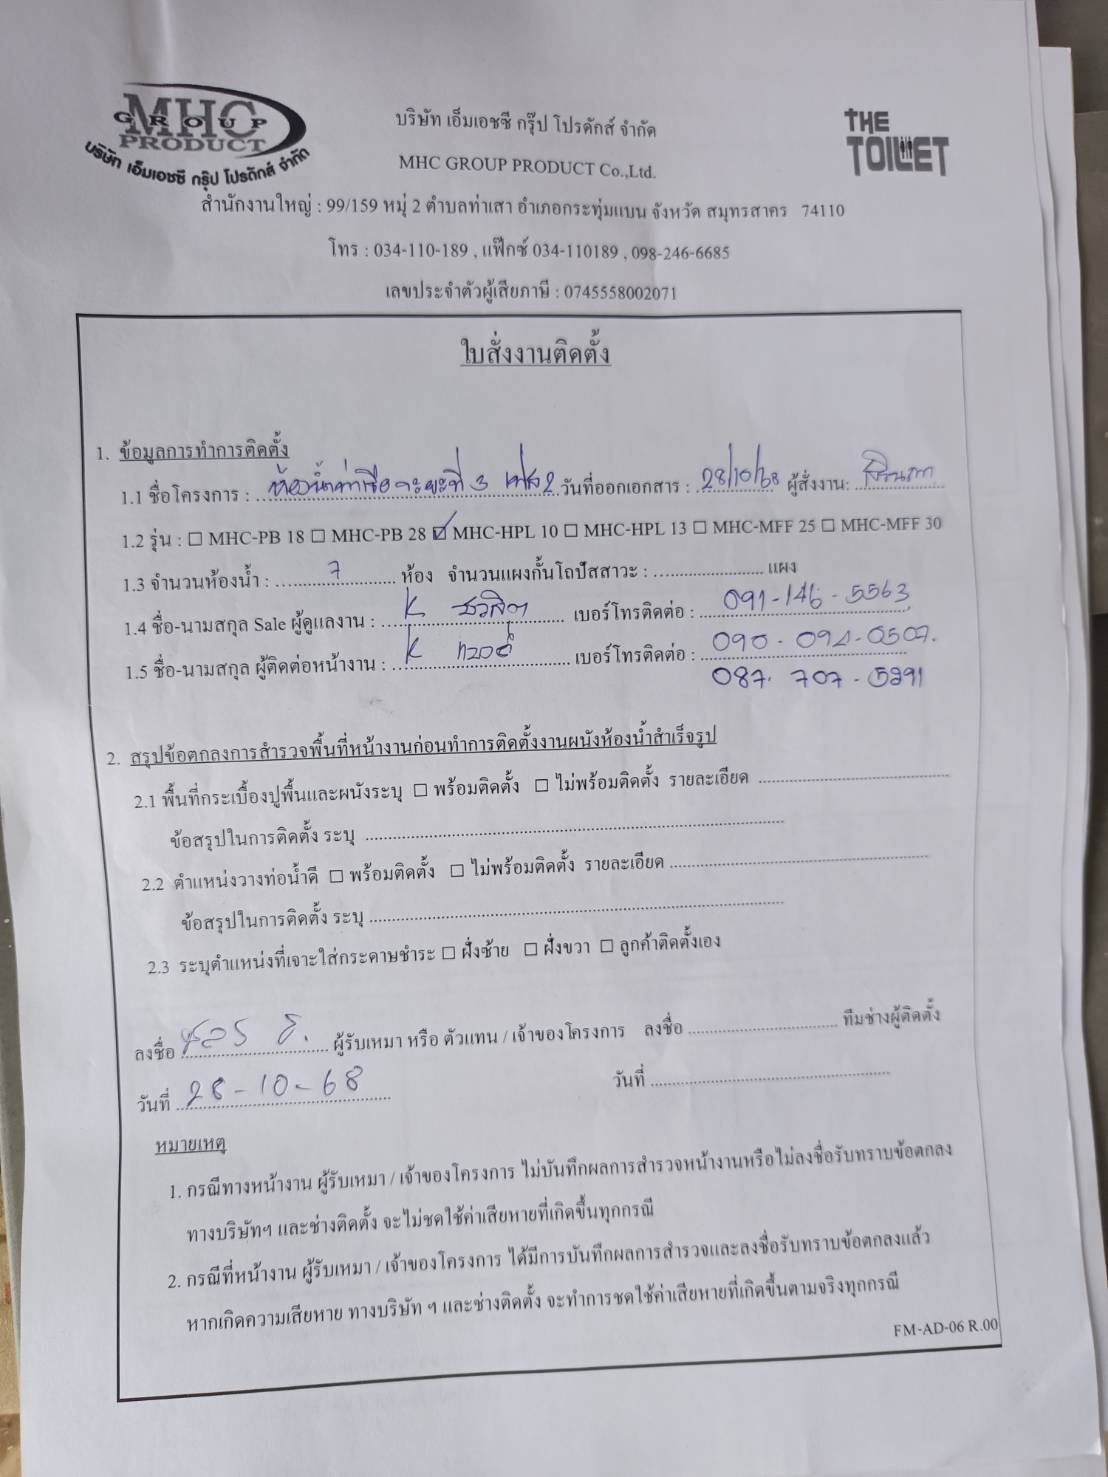 MHC
GROUP
PRODUCT
บริษัท เอ็มเอชซี กรุ๊ป โปรดักส์ จำกัด
บริษัท เอ็มเอชซี กรุ๊ป โปรดักส์ จำกัด
MHC GROUP PRODUCT Co.,Ltd.
THE
TOILET
สำนักงานใหญ่ : 99/159 หมู่ 2 ตำบลท่าเสา อำเภอกระทุ่มแบน จังหวัด สมุทรสาคร 74110
โทร : 034-110-189 , แฟ๊กซ์ 034-110189 , 098-246-6685
เลขประจำตัวผู้เสียภาษี : 0745558002071
ใบสั่งงานติดตั้ง
1. ข้อมูลการทำการติดตั้ง
1.1 ชื่อโครงการ : ห้องน้ำท่าเรือ ระยะที่ 3 เฟส 2 วันที่ออกเอกสาร : 28/10/68 ผู้สั่งงาน:
1.2 รุ่น : ☐ MHC-PB 18 ☐ MHC-PB 28 ☑ MHC-HPL 10 ☐ MHC-HPL 13 ☐ MHC-MFF 25 ☐ MHC-MFF 30
1.3 จำนวนห้องน้ำ : 7 ห้อง จำนวนแผงกั้นโถปัสสาวะ : แผง
1.4 ชื่อ-นามสกุล Sale ผู้ดูแลงาน : K ชวลิต เบอร์โทรติดต่อ : 091-146-5563
1.5 ชื่อ-นามสกุล ผู้ติดต่อหน้างาน : K เบอร์โทรติดต่อ : 090-094-0507.
087-707-5891
2. สรุปข้อตกลงการสำรวจพื้นที่หน้างานก่อนทำการติดตั้งงานผนังห้องน้ำสำเร็จรูป
2.1 พื้นที่กระเบื้องปูพื้นและผนังระบุ ☐ พร้อมติดตั้ง ☐ ไม่พร้อมติดตั้ง รายละเอียด
ข้อสรุปในการติดตั้ง ระบุ
2.2 ตำแหน่งวางท่อน้ำดี ☐ พร้อมติดตั้ง ☐ ไม่พร้อมติดตั้ง รายละเอียด
ข้อสรุปในการติดตั้ง ระบุ
2.3 ระบุตำแหน่งที่เจาะใส่กระดาษชำระ ☐ ฝั่งซ้าย ☐ ฝั่งขวา ☐ ลูกค้าติดตั้งเอง
ลงชื่อ ผู้รับเหมา หรือ ตัวแทน / เจ้าของโครงการ ลงชื่อ ทีมช่างผู้ติดตั้ง
วันที่ 28-10-68 วันที่
หมายเหตุ
1. กรณีทางหน้างาน ผู้รับเหมา / เจ้าของโครงการ ไม่บันทึกผลการสำรวจหน้างานหรือไม่ลงชื่อรับทราบข้อตกลง
ทางบริษัทฯ และช่างติดตั้ง จะไม่ชดใช้ค่าเสียหายที่เกิดขึ้นทุกกรณี
2. กรณีที่หน้างาน ผู้รับเหมา / เจ้าของโครงการ ได้มีการบันทึกผลการสำรวจและลงชื่อรับทราบข้อตกลงแล้ว
หากเกิดความเสียหาย ทางบริษัท ฯ และช่างติดตั้ง จะทำการชดใช้ค่าเสียหายที่เกิดขึ้นตามจริงทุกกรณี
FM-AD-06 R.00